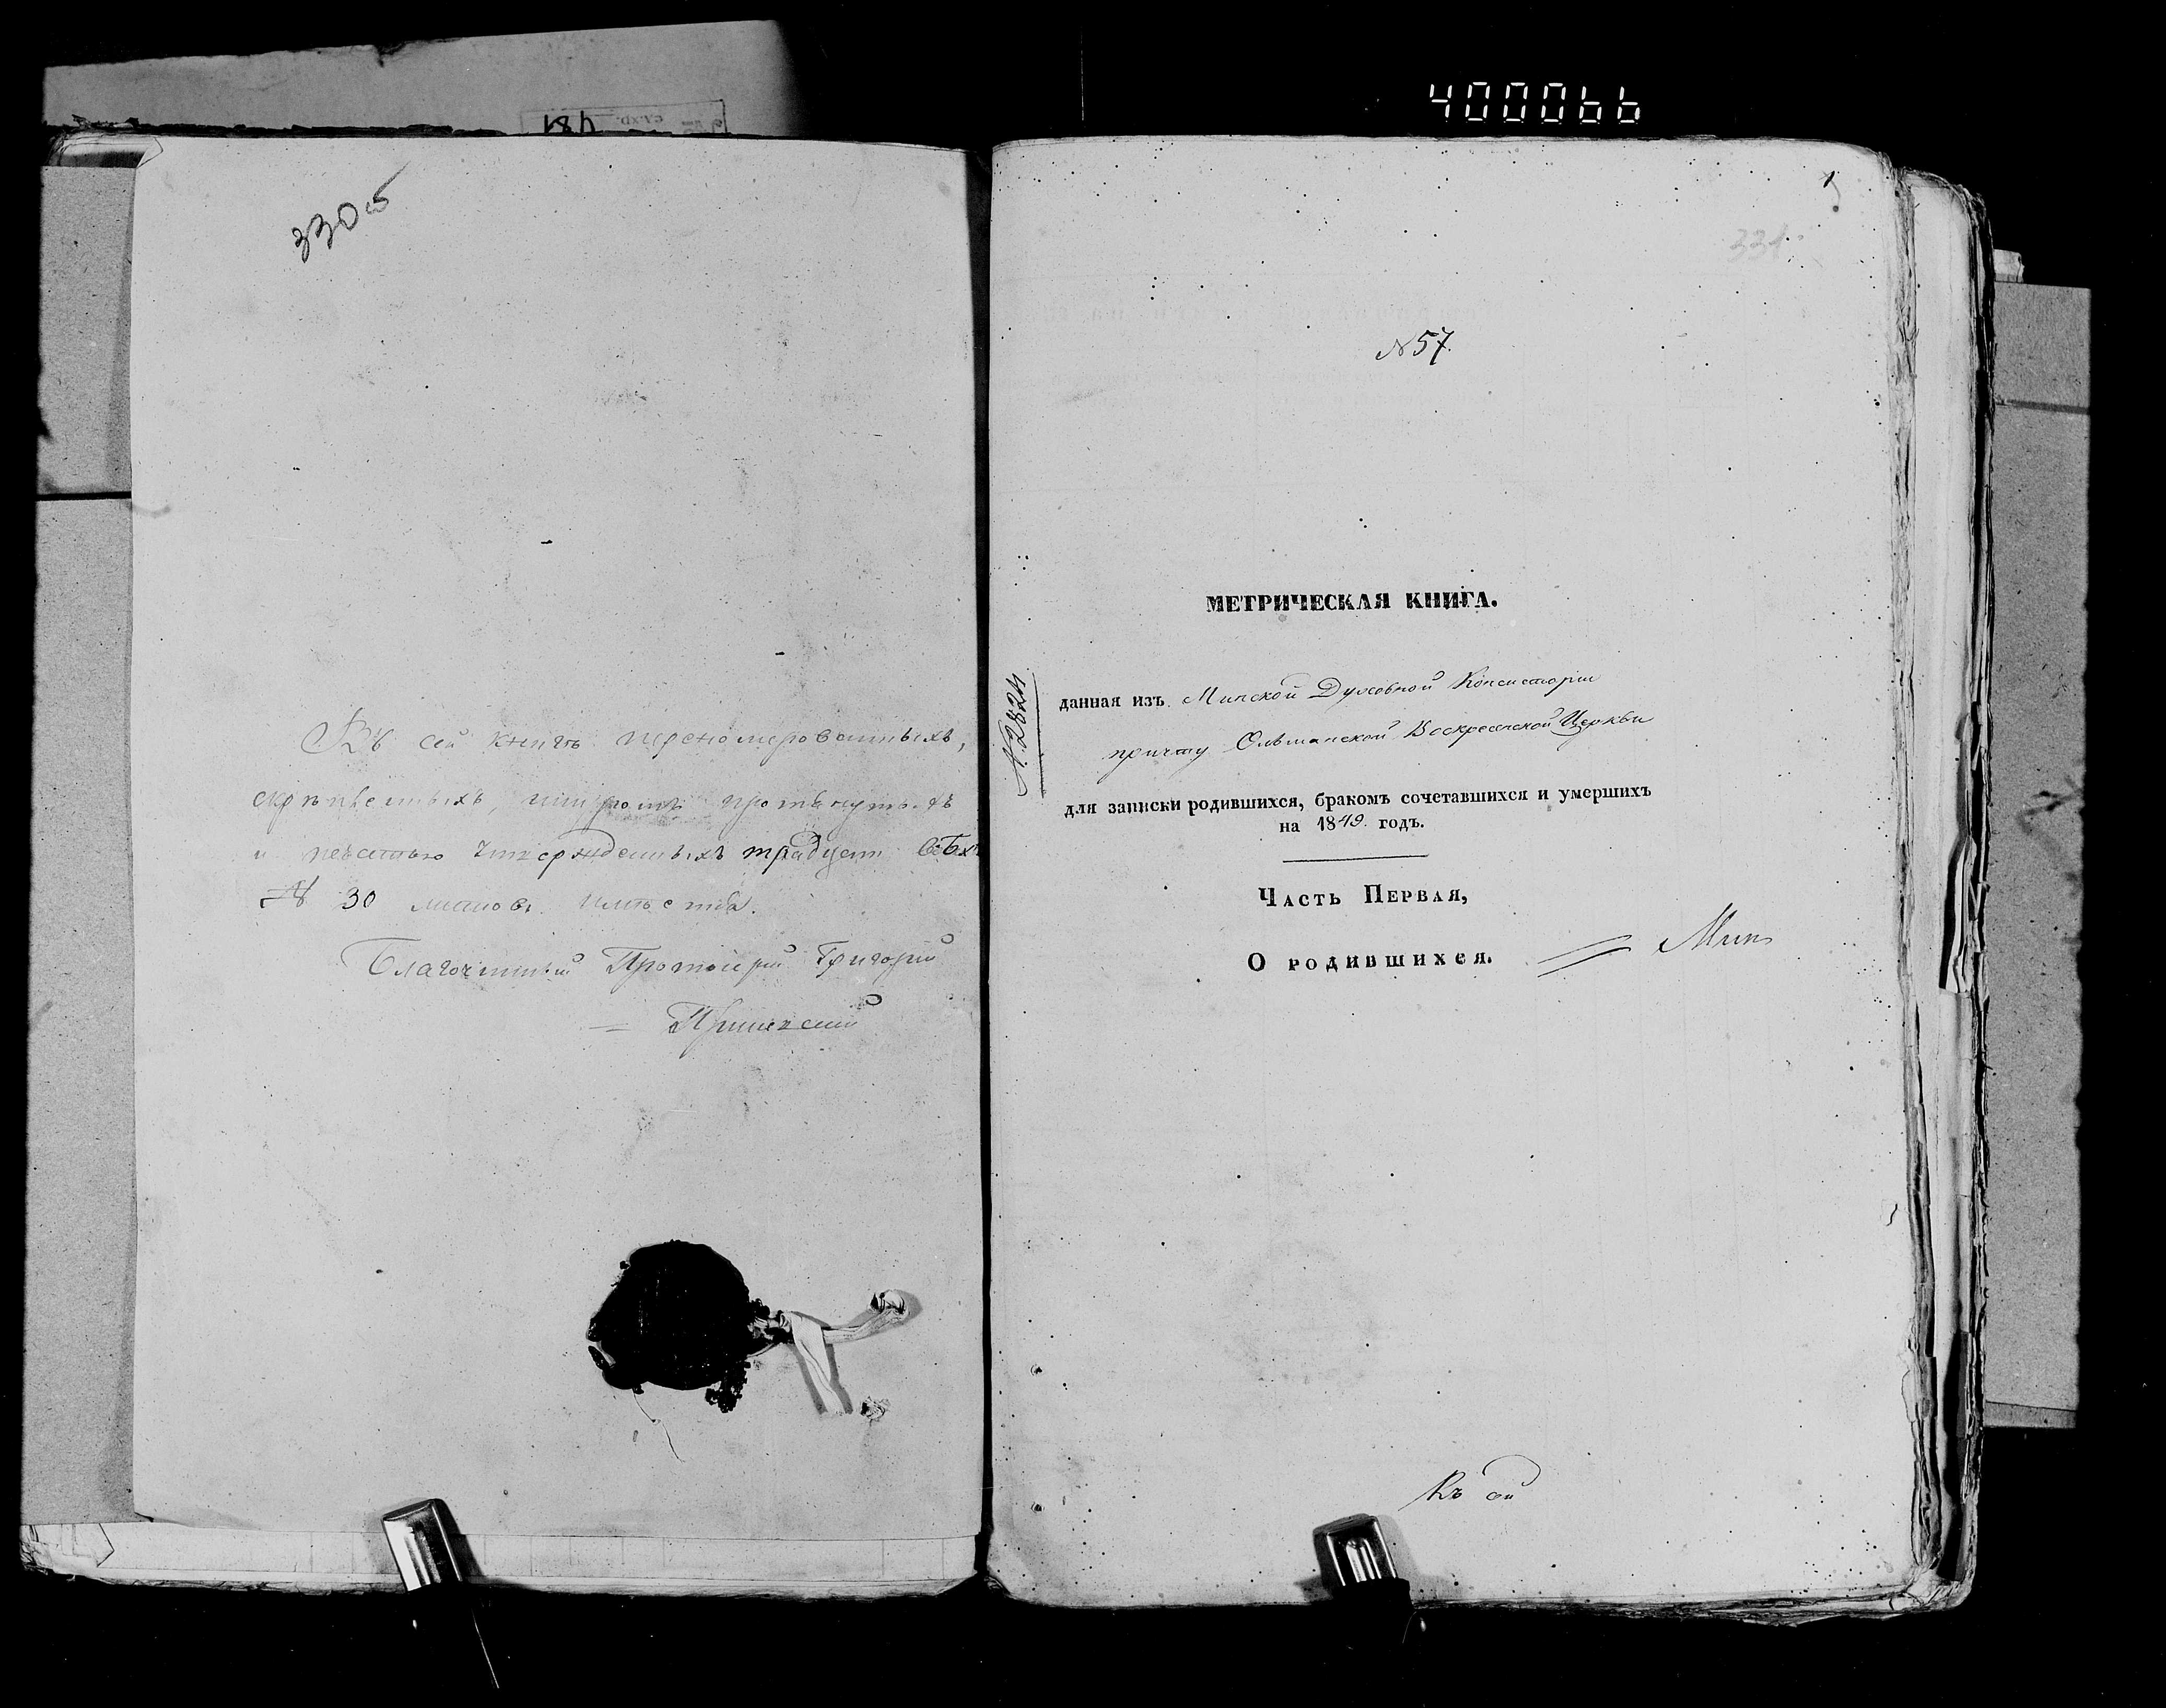 400066
330об
Въ сей книгѣ перенумерованныхъ,
скрѣпленныхъ, шнуромъ протянутыхъ
и печатью утвержденныхъ тридцать всѣхъ
№ 30 листовъ имѣется.
Благочинный Протоіерей Григорій
1
331
№ 57.
МЕТРИЧЕСКАЯ КНИГА.
№ 2824
данная изъ Минской Духовной Консисторіи
причту Ольшанской Воскресенской Церкви
для записки родившихся, бракомъ сочетавшихся и умершихъ
на 1849 годъ.
Часть Первая,
О родившихся. Мин
Къ сей